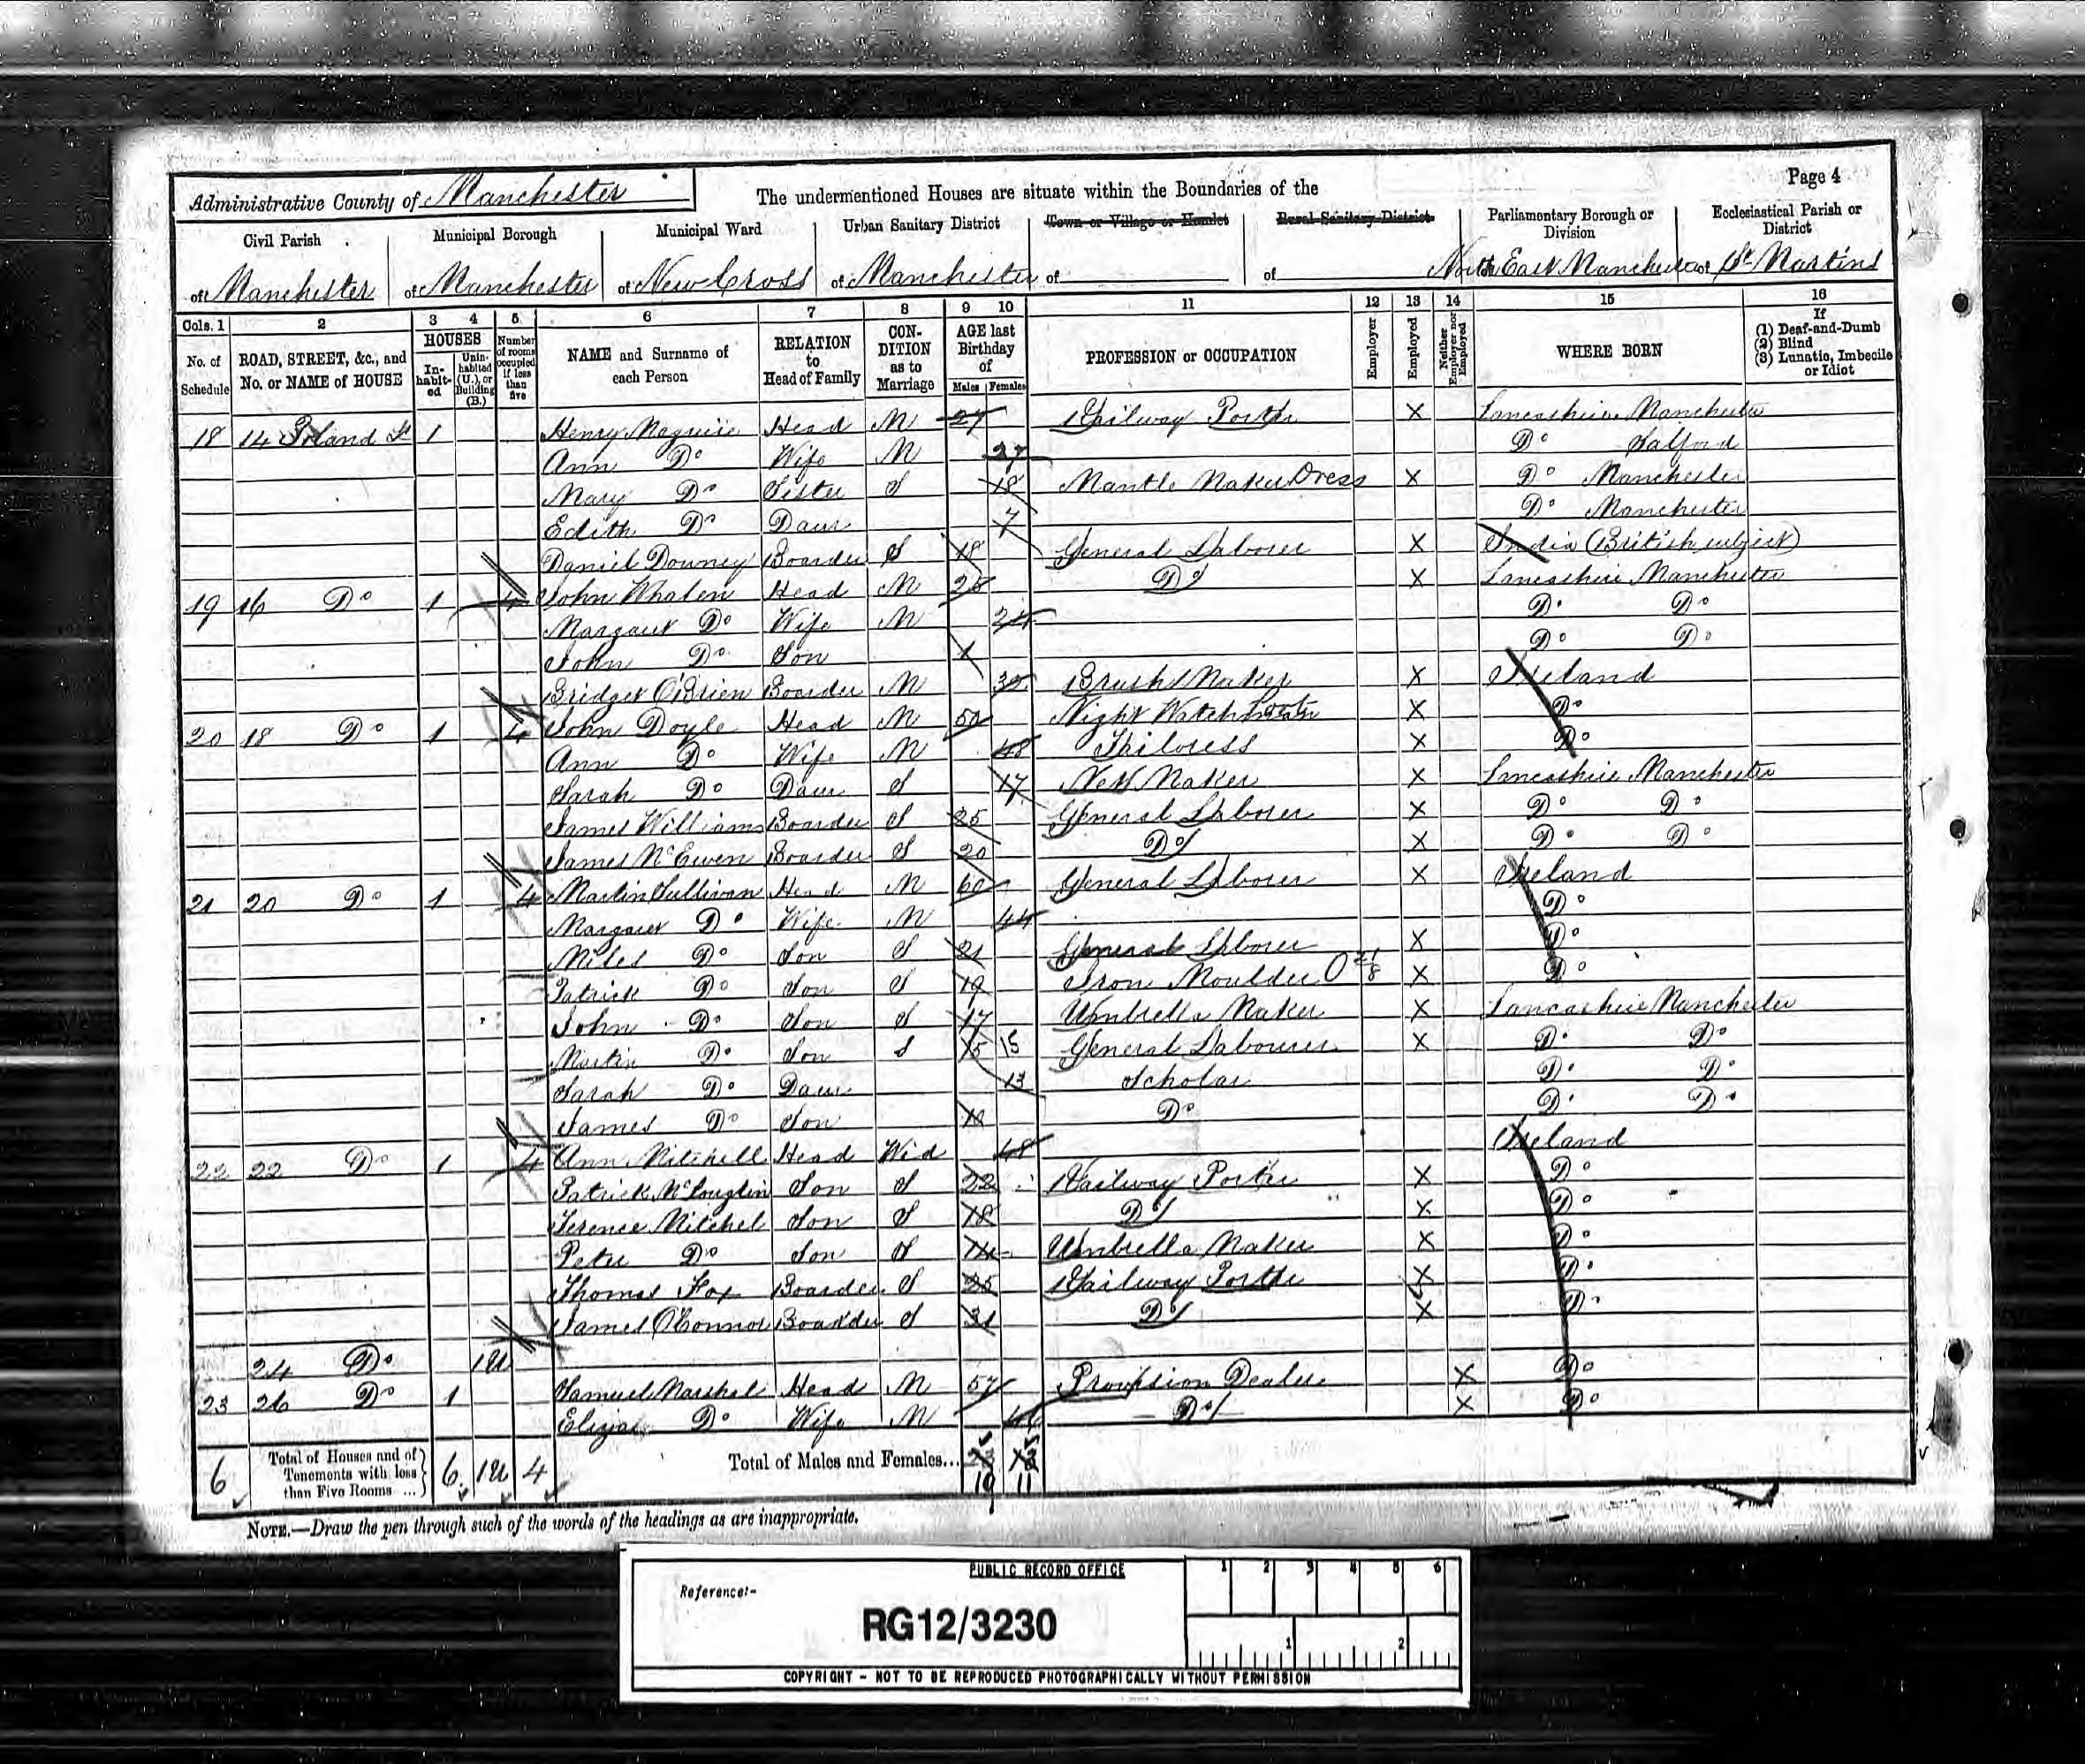 Page 4
Administrative County of Manchester
The undermentioned Houses are situate within the Boundaries of the
Civil Parish
of Manchester
Municipal Borough
of Manchester
Municipal Ward
of New Cross
Urban Sanitary District
of Manchester
Town or Village or Hamlet
of
Rural Sanitary District
of
Parliamentary Borough or Division
North East Manchester
Ecclesiastical Parish or District
of St Martins
Cols. 1 2 3 4 5 6 7 8 9 10 11 12 13 14 15 16
No. of Schedule
ROAD, STREET, &c., and No. or NAME of HOUSE
HOUSES
In-habit-ed
Unin-habited (U.), or Building (B.)
Number of rooms occupied if less than five
NAME and Surname of each Person
RELATION to Head of Family
CON-DITION as to Marriage
AGE last Birthday of
Males Females
PROFESSION or OCCUPATION
Employer
Employed
Neither Employer nor Employed
WHERE BORN
If
(1) Deaf-and-Dumb
(2) Blind
(3) Lunatic, Imbecile or Idiot
18 14 St 1 Henry Maguire Head M 27 Railway Porter X Lancashire Manchester
Ann Do Wife M 27 Do Salford
Mary Do Sister S 18 Mantle Maker Dress X Do Manchester
Edith Do Daur 7 Do Manchester
Daniel Downey Boarder S 18 General Laborer X India (British subject)
19 16 Do 1 4 John Whalen Head M 25 Do X Lancashire Manchester
Margaret Do Wife M 24 Do Do
John Do Son 1 Do Do
Bridget O'Brien Boarder M 30 Brush Maker X Ireland
20 18 Do 1 4 John Doyle Head M 50 Night Watchman X Do
Ann Do Wife M 48 Tailoress X Do
Sarah Do Daur S 17 Net Maker X Lancashire Manchester
James Williams Boarder S 25 General Laborer X Do Do
James McEwen Boarder S 20 Do X Do Do
21 20 Do 1 4 Martin Sullivan Head M 60 General Laborer X Ireland
Margaret Do Wife M 44 Do
Miles Do Son S 21 General Laborer X Do
Patrick Do Son S 19 Iron Moulder X Do
John Do Son S 17 Umbrella Maker X Lancashire Manchester
Martin Do Son S 15 15 General Labourer X Do Do
Sarah Do Daur 13 Scholar Do Do
James Do Son Do Do Do
22 22 Do 1 4 Ann Mitchell Head Wid 48 Ireland
Patrick McLouglin Son S 22 Railway Porter X Do
Terence Mitchel Son S 18 Do X Do
Peter Do Son S 14 Umbrella Maker X Do
Thomas Fox Boarder S 25 Railway Porter X Do
James O'Connor Boarder S 31 Do X Do
24 Do 1U
23 26 Do 1 Samuel Marshal Head M 57 Provision Dealer X Do
Eliza Do Wife M Do X Do
6 Total of Houses and of Tenements with less than Five Rooms ... 6 1U 4 Total of Males and Females... 19 11
NOTE.—Draw the pen through such of the words of the headings as are inappropriate.
PUBLIC RECORD OFFICE
1 2 3 4 5 6
Reference:-
RG12/3230
1 2
COPYRIGHT - NOT TO BE REPRODUCED PHOTOGRAPHICALLY WITHOUT PERMISSION